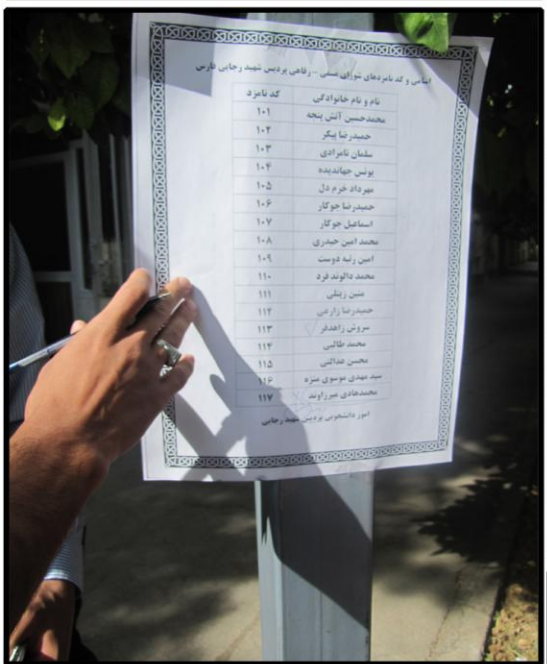 اسامی و کد نامزدهای شورای صنفی - رفاهی پردیس شهید رجایی فارس
نام و نام خانوادگی کد نامزد
محمدحسین آتش پنجه ۱۰۱
حمیدرضا پیکر ۱۰۲
سلمان تامرادی ۱۰۳
یونس جهاندیده ۱۰۴
مهرداد خرم دل ۱۰۵
حمیدرضا جوکار ۱۰۶
اسماعیل جوکار ۱۰۷
محمد امین حیدری ۱۰۸
امین رتبه دوست ۱۰۹
محمد دالوند فرد ۱۱۰
متین زینلی ۱۱۱
حمیدرضا زارعی ۱۱۲
سروش زاهدفر ۱۱۳
محمد طالبی ۱۱۴
محسن عدالتی ۱۱۵
سید مهدی موسوی منزه ۱۱۶
محمدهادی میرزاوند ۱۱۷
امور دانشجویی پردیس شهید رجایی